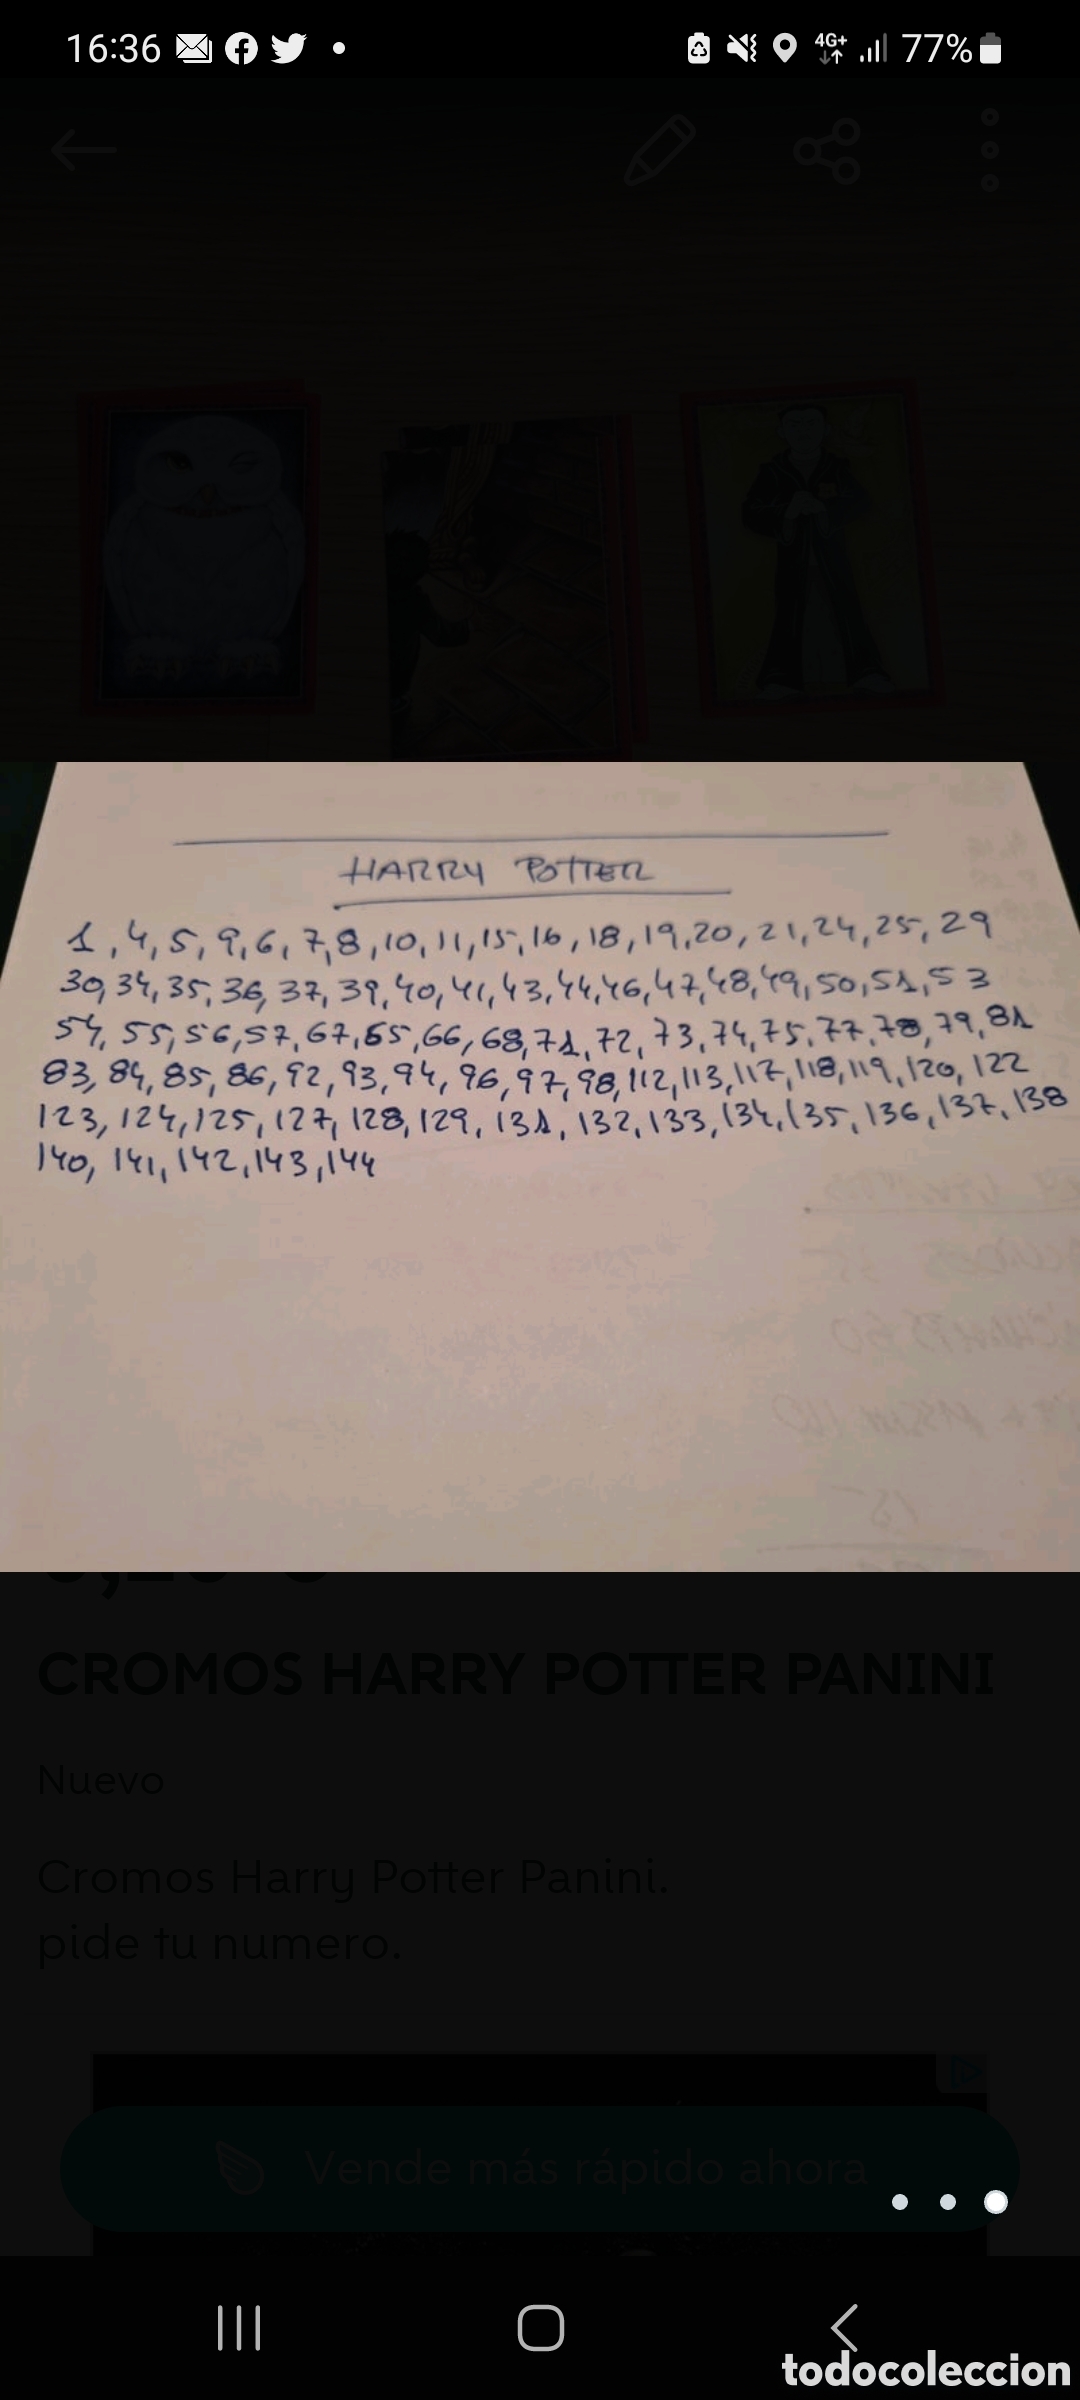 16:36
4G+
77%
HARRY POTTER
1, 4, 5, 9, 6, 7, 8, 10, 11, 15, 16, 18, 19, 20, 21, 24, 25, 29
30, 34, 35, 36, 37, 39, 40, 41, 43, 44, 46, 47, 48, 49, 50, 51, 53
54, 55, 56, 57, 67, 65, 66, 68, 71, 72, 73, 74, 75, 77, 78, 79, 81
83, 84, 85, 86, 92, 93, 94, 96, 97, 98, 112, 113, 117, 118, 119, 120, 122
123, 124, 125, 127, 128, 129, 131, 132, 133, 134, 135, 136, 137, 138
140, 141, 142, 143, 144
CROMOS HARRY POTTER PANINI
Nuevo
Cromos Harry Potter Panini.
pide tu numero.
Vende más rápido ahora
todocoleccion